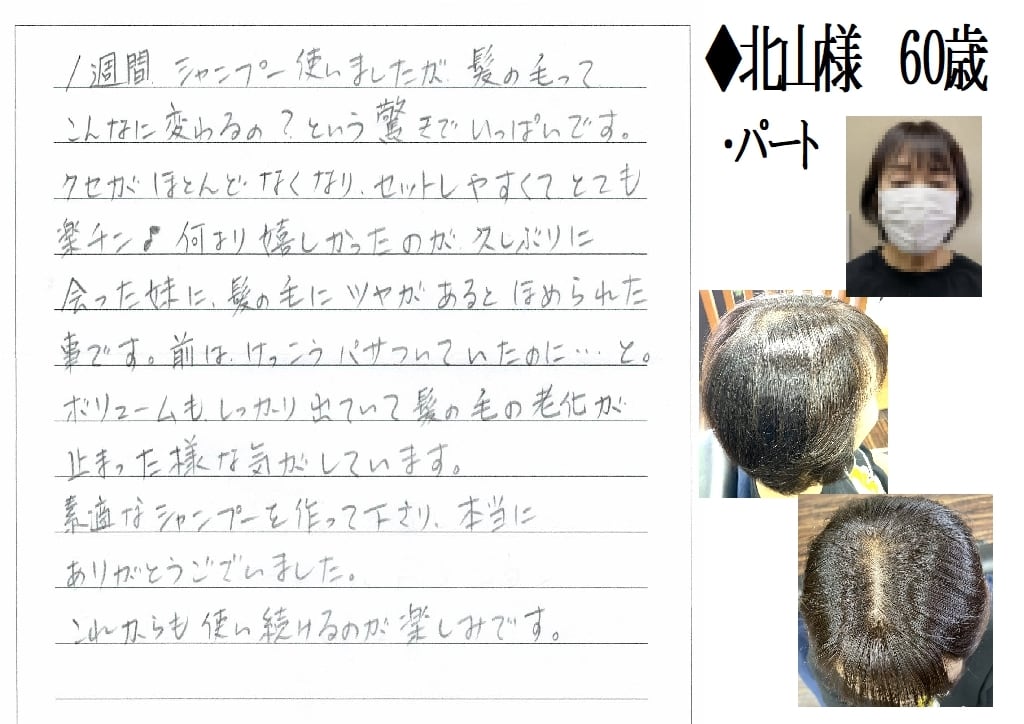 1週間、シャンプー使いましたが、髪の毛って
こんなに変わるの？という驚きでいっぱいです。
クセがほとんどなくなり、セットしやすくてとても
楽チン♪何より嬉しかったのが、久しぶりに
会った妹に、髪の毛にツヤがあるとほめられた
事です。前は、けっこうパサついていたのに…と。
ボリュームもしっかり出ていて髪の毛の老化が
止まった様な気がしています。
素適なシャンプーを作って下さり、本当に
ありがとうございました。
これからも使い続けるのが楽しみです。
◆北山様 60歳
・パート